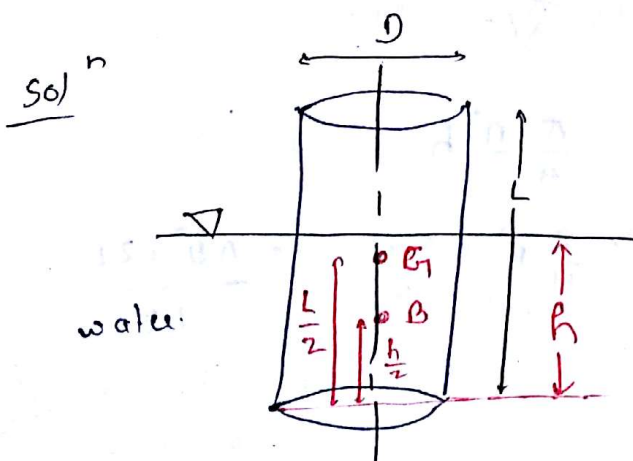 Solⁿ
D
L
G
water.
L/2
B
h/2
h